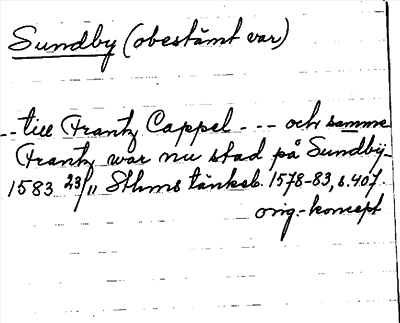 Sundby (obestämt var)
-- till Frantz Cappel --- och samme
Frantz war nu stad på Sundby-
1583 23/11 Sthms tänkeb. 1578-83, s. 407.
orig.-koncept